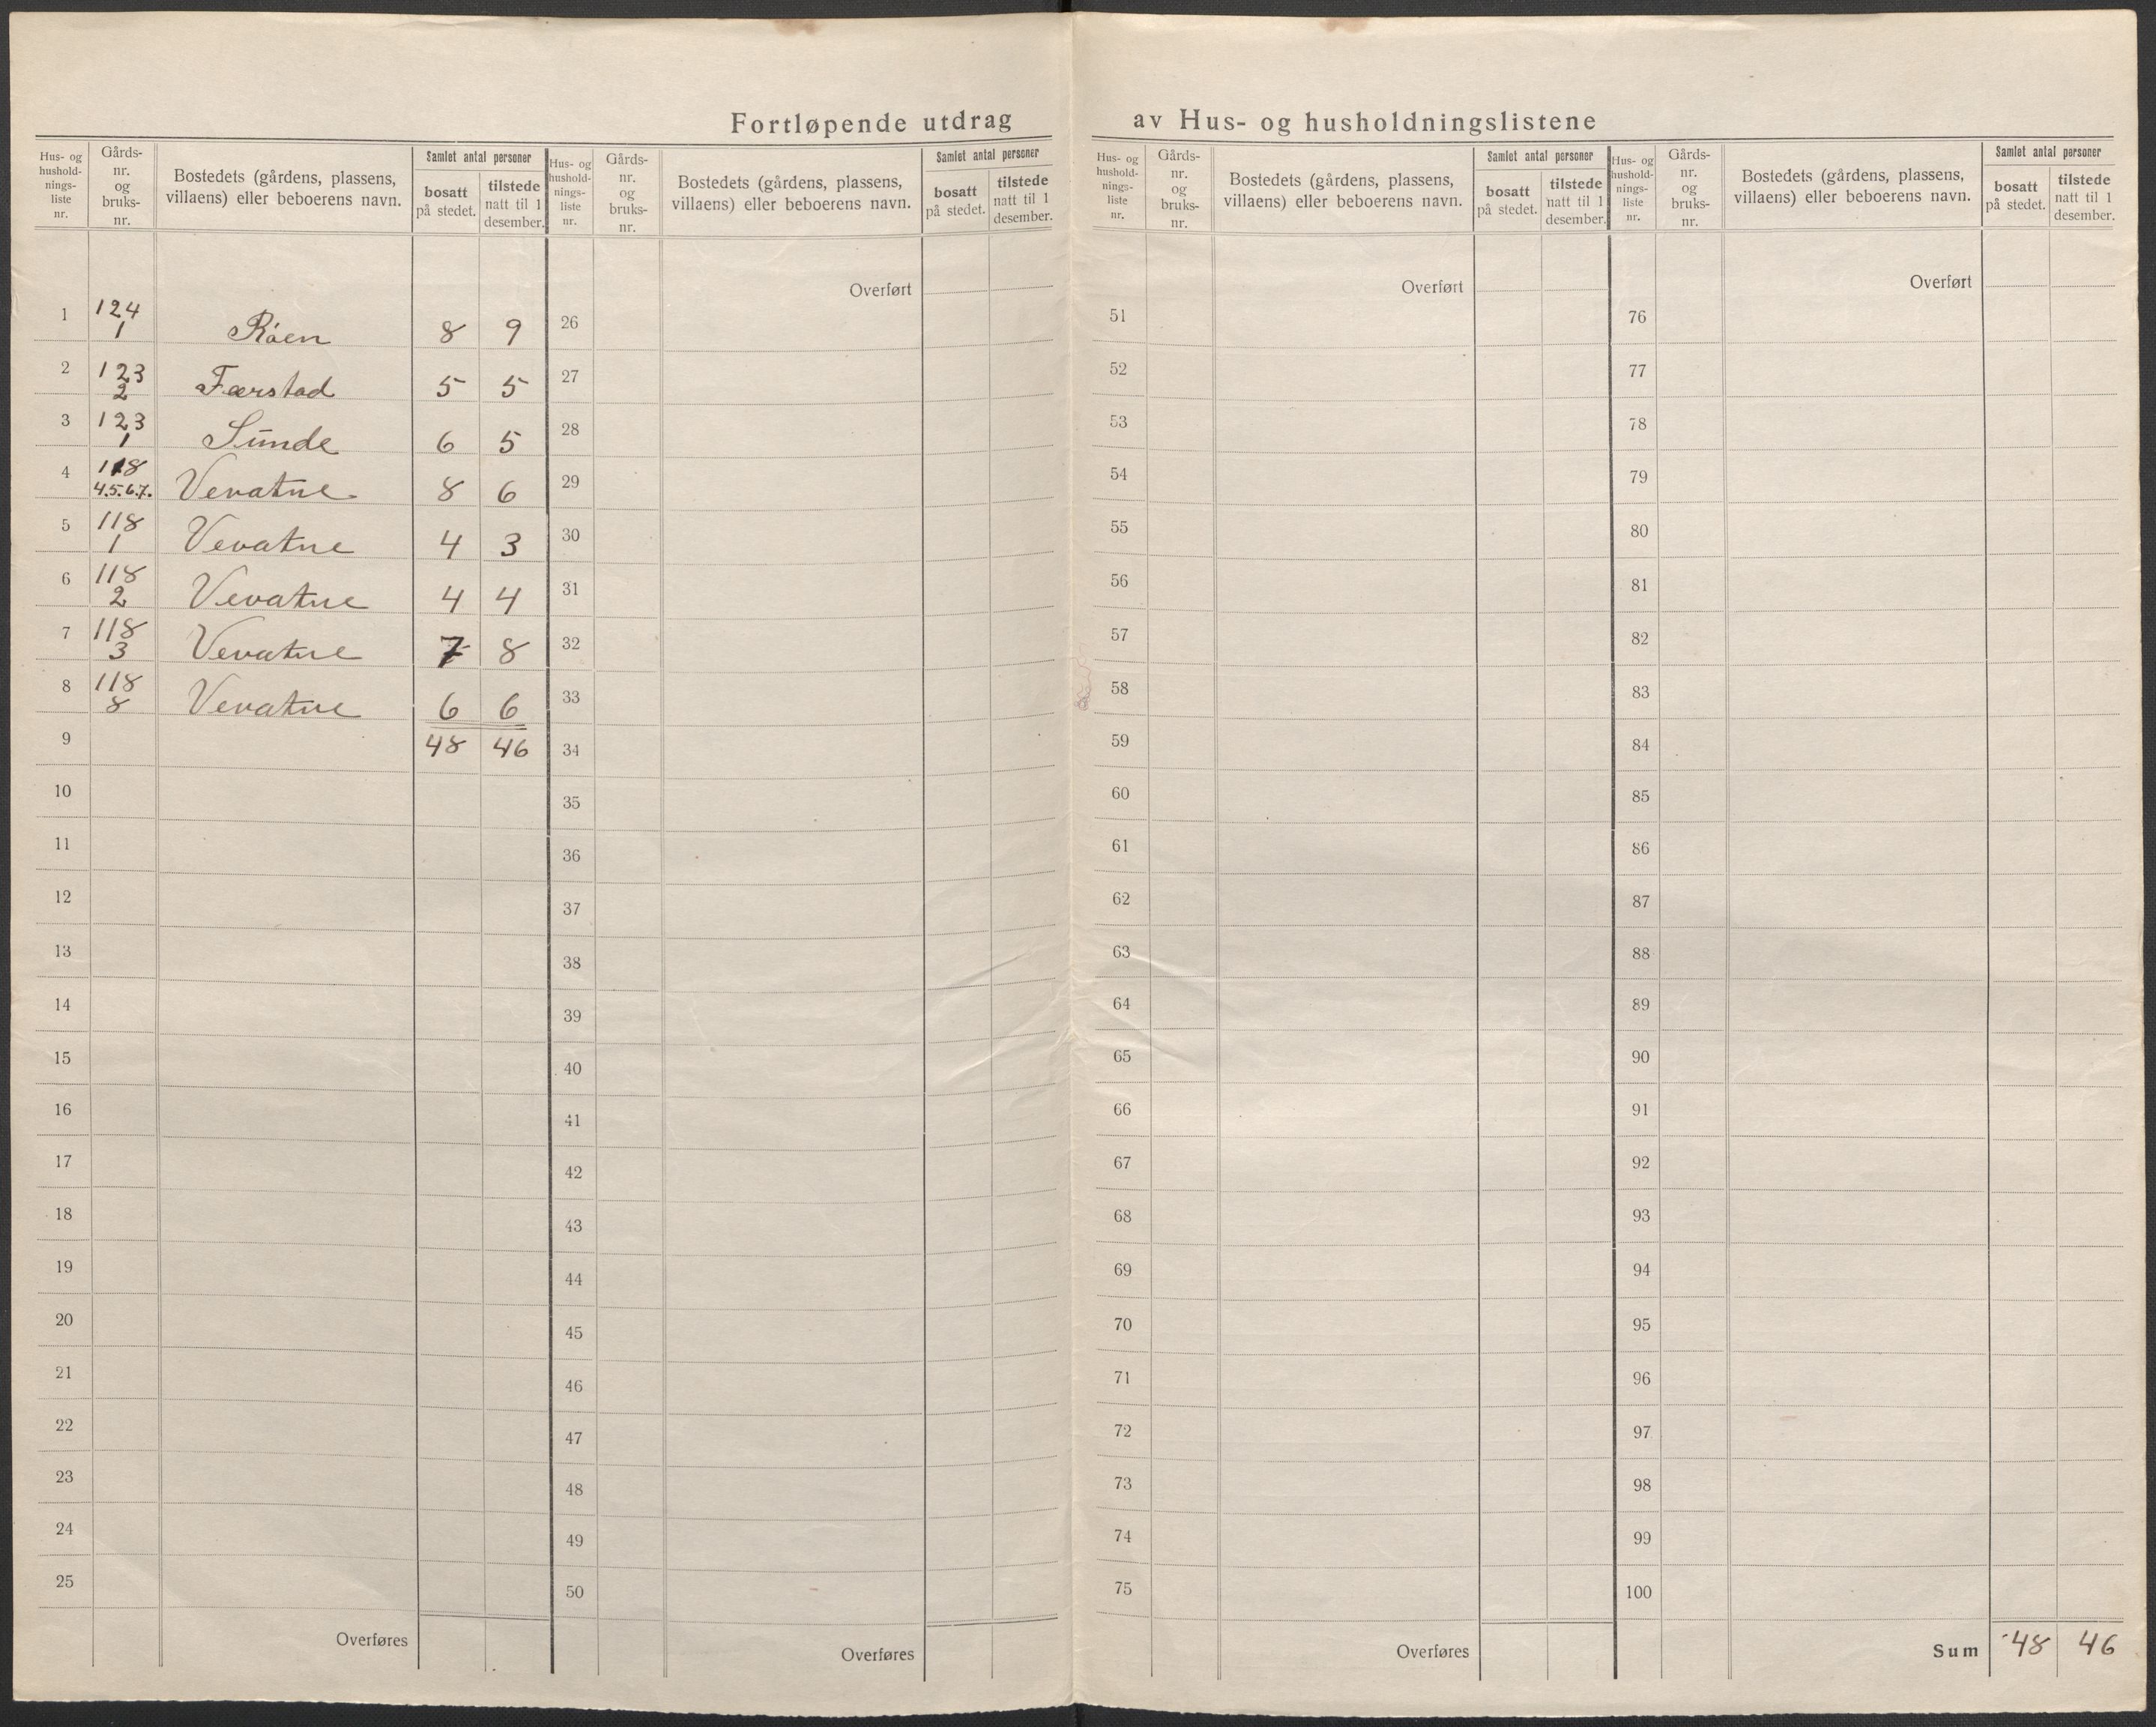 Fortløpende utdrag av Hus- og husholdningslistene
Hus- og hushold-nings-liste nr.
Gårds-nr. og bruks-nr.
Bostedets (gårdens, plassens, villaens) eller beboerens navn.
Samlet antal personer
bosatt på stedet.
tilstede natt til 1 desember.
1 124 1 Røen 8 9
2 123 2 Færstad 5 5
3 123 1 Sunde 6 5
4 118 4.5.6.7. Vevatne 8 6
5 118 1 Vevatne 4 3
6 118 2 Vevatne 4 4
7 118 3 Vevatne 7 8
8 118 8 Vevatne 6 6
9 48 46
10
11
12
13
14
15
16
17
18
19
20
21
22
23
24
25
Overføres
Hus- og hushold-nings-liste nr.
Gårds-nr. og bruks-nr.
Bostedets (gårdens, plassens, villaens) eller beboerens navn.
Samlet antal personer
bosatt på stedet.
tilstede natt til 1 desember.
Overført
26
27
28
29
30
31
32
33
34
35
36
37
38
39
40
41
42
43
44
45
46
47
48
49
50
Overføres
Hus- og hushold-nings-liste nr.
Gårds-nr. og bruks-nr.
Bostedets (gårdens, plassens, villaens) eller beboerens navn.
Samlet antal personer
bosatt på stedet.
tilstede natt til 1 desember.
Overført
51
52
53
54
55
56
57
58
59
60
61
62
63
64
65
66
67
68
69
70
71
72
73
74
75
Overføres
Hus- og hushold-nings-liste nr.
Gårds-nr. og bruks-nr.
Bostedets (gårdens, plassens, villaens) eller beboerens navn.
Samlet antal personer
bosatt på stedet.
tilstede natt til 1 desember.
Overført
76
77
78
79
80
81
82
83
84
85
86
87
88
89
90
91
92
93
94
95
96
97
98
99
100
Sum 48 46